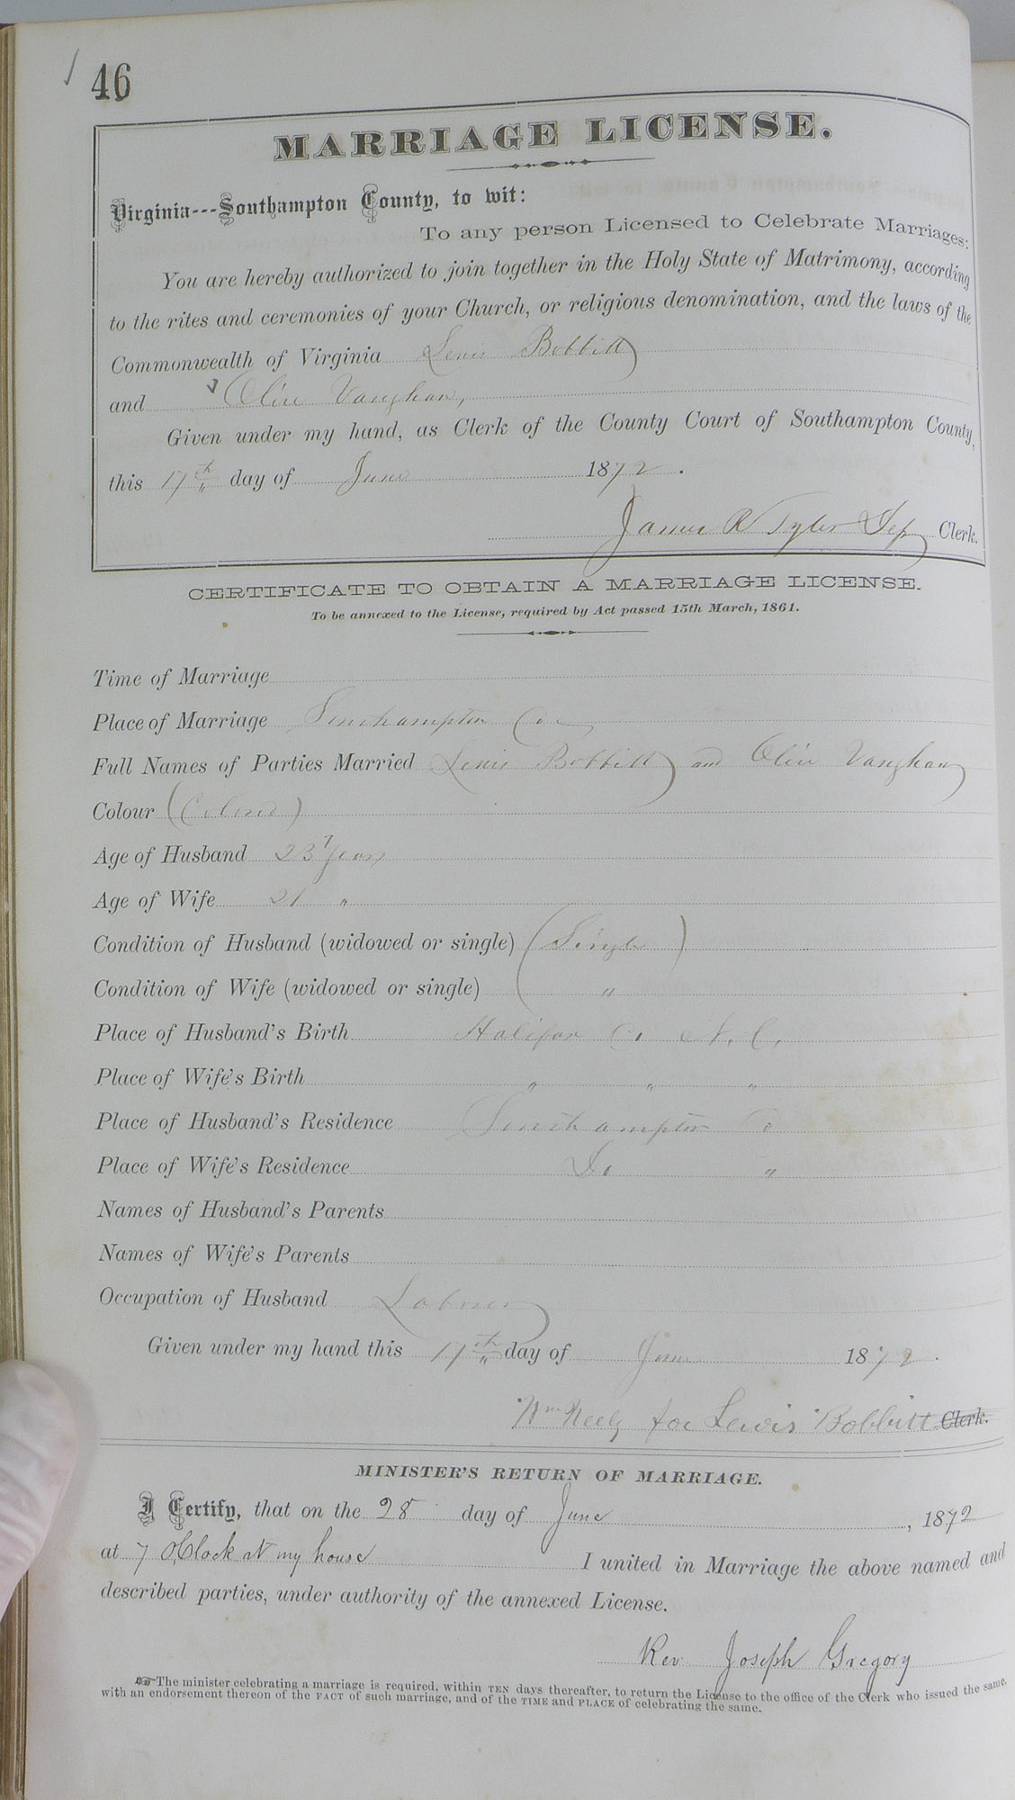 46
MARRIAGE LICENSE.
Virginia---Southampton County, to wit:
To any person Licensed to Celebrate Marriages:
You are hereby authorized to join together in the Holy State of Matrimony, according
to the rites and ceremonies of your Church, or religious denomination, and the laws of the
Commonwealth of Virginia Lewis Bobbitt
and Olive Vaughan,
Given under my hand, as Clerk of the County Court of Southampton County,
this 17th day of June 1872.
James R Tyler Dep Clerk.
CERTIFICATE TO OBTAIN A MARRIAGE LICENSE.
To be annexed to the License, required by Act passed 15th March, 1861.
Time of Marriage
Place of Marriage Southampton Co
Full Names of Parties Married Lewis Bobbitt and Olive Vaughan
Colour (Colored)
Age of Husband 23 Years
Age of Wife 21 "
Condition of Husband (widowed or single) (Single)
Condition of Wife (widowed or single) "
Place of Husband's Birth Halifax Co. N. C.
Place of Wife's Birth " " "
Place of Husband's Residence Southampton Co
Place of Wife's Residence Do "
Names of Husband's Parents
Names of Wife's Parents
Occupation of Husband Laborer
Given under my hand this 17th day of June 1872.
Wm Neely for Lewis Bobbitt Clerk.
MINISTER'S RETURN OF MARRIAGE.
I Certify, that on the 28 day of June, 1872
at 7 O,Clock at my house I united in Marriage the above named and
described parties, under authority of the annexed License.
Rev Joseph Gregory
☞ The minister celebrating a marriage is required, within TEN days thereafter, to return the License to the office of the Clerk who issued the same,
with an endorsement thereon of the FACT of such marriage, and of the TIME and PLACE of celebrating the same.